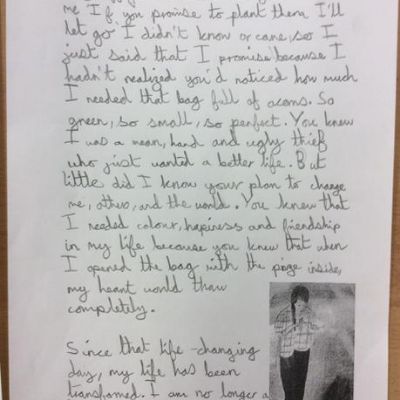 me 'If you promise to plant them I'll
let go' I didn't know or care, so I
just said that I promise because I
hadn't realized you'd noticed how much
I needed that bag full of acorns. So
green, so small, so perfect. You knew
I was a mean, hard and ugly thief
who just wanted a better life. But
little did I know your plan to change
me, others, and the world. You knew that
I needed colour, hapiness and friendship
in my life because you knew that when
I opened the bag with the prize inside,
my heart would thaw
completely.
Since that life-changing
day, my life has been
transformed. I am no longer a